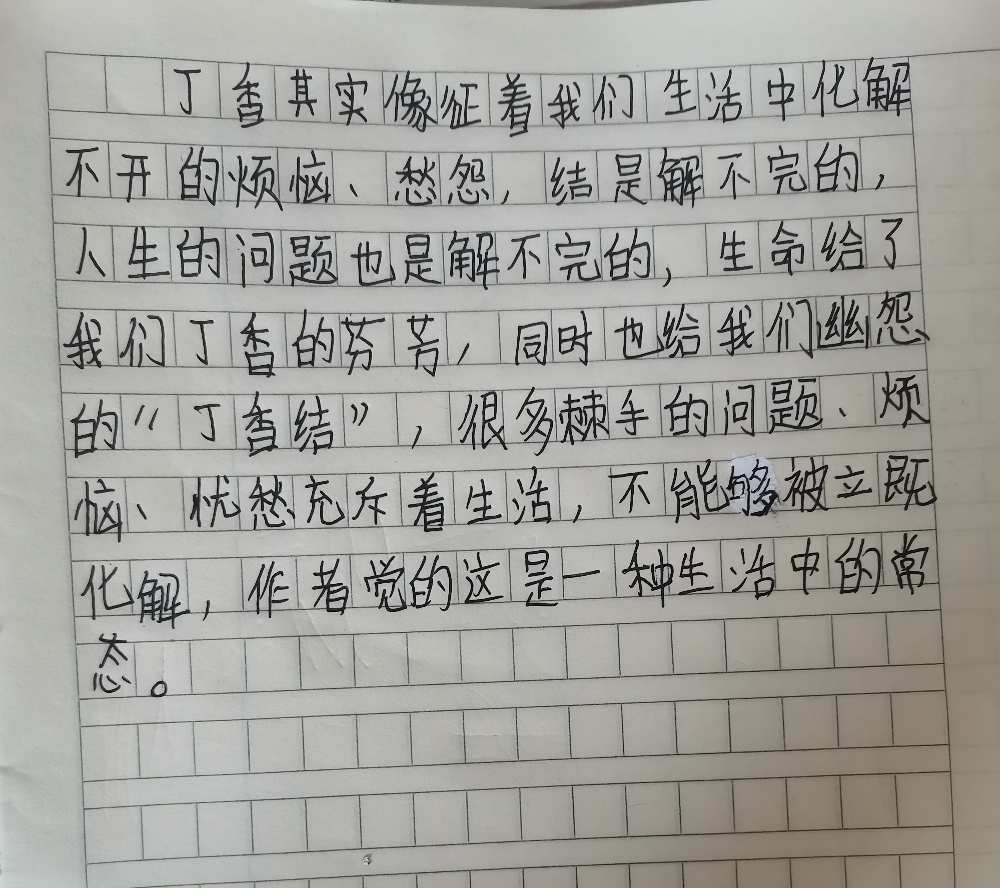 丁香其实像征着我们生活中化解
不开的烦恼、愁怨，结是解不完的，
人生的问题也是解不完的，生命给了
我们丁香的芬芳，同时也给我们幽怨
的“丁香结”，很多棘手的问题、烦
恼、忧愁充斥着生活，不能够被立既
化解，作者觉的这是一种生活中的常
态。